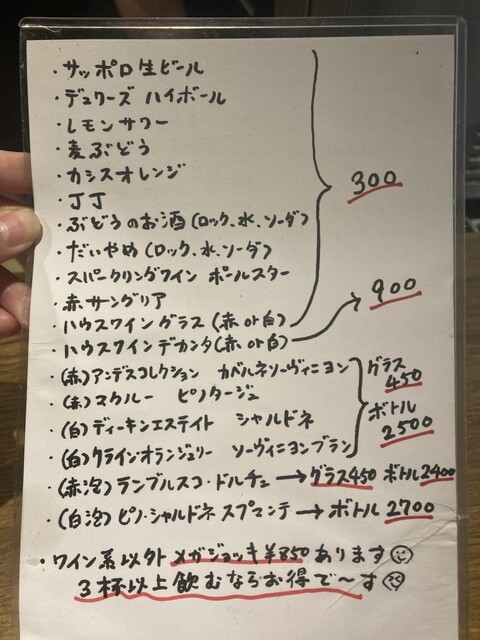 ・サッポロ生ビール
・デュワーズ ハイボール
・レモンサワー
・麦ぶどう
・カシスオレンジ
・丁丁
・ぶどうのお酒(ロック、水、ソーダ)
・だいやめ(ロック、水、ソーダ)
・スパークリングワイン ポールスター
・赤サングリア
・ハウスワイングラス(赤or白)
300
・ハウスワインデカンタ(赤or白)
900
・(赤)アンデスコレクション カベルネソーヴィニヨン
・(赤)マクルー ピノタージュ
・(白)ディーキンエステイト シャルドネ
・(白)クライン・オランジュリー ソーヴィニヨンブラン
グラス
450
ボトル
2500
・(赤泡)ランブルスコ・ドルチェ→グラス450 ボトル2400
・(白泡)ピノ・シャルドネ スプマンテ→ボトル2700
・ワイン系以外メガジョッキ¥850あります
3杯以上飲むならお得で〜す